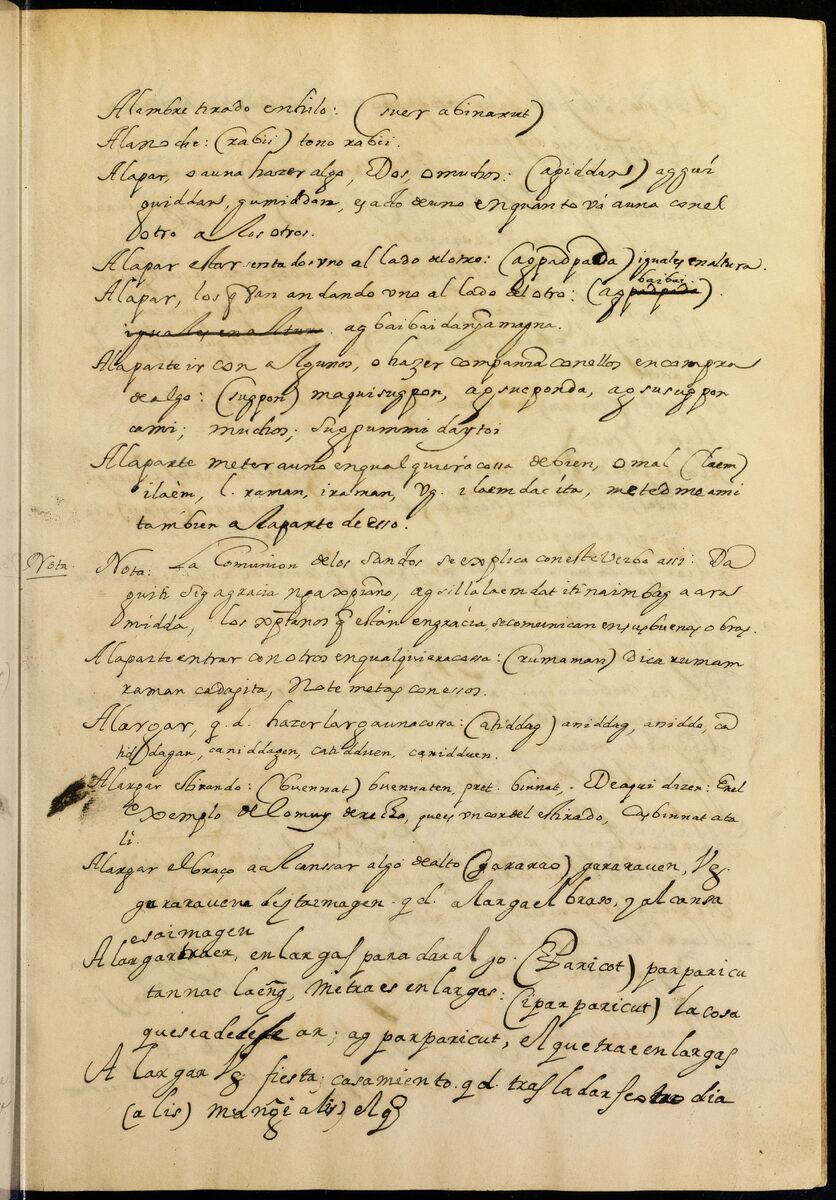 Alambre tirado enhilo: (suer abinarut)
Alanoche: (rabii) tono rabii.
Alapar, o auna hazer algo, Dos, omuchos: (agiddans) aggui
guiddans, gumiddan, es acto deuno enquanto vá auna conel
otro a los otros.
Alapar estar sentados uno al lado delotro: (agpadpada) iguales enaltura.
Alapar, los q̃ van andando uno al lado del otro: (agpadpada baibai).
iguales en altura. agbaibaidan
Alaparte ir con algunos, o hazer compania conellos encompra
dealgo: (sugpon) maquisugpon, agsucponda, agsusugpon
cami; muchos; sugpummi daytoi
Alaparte meter auno enqualquiera cossa debien, o mal (laem)
ilaèm, l. raman, iraman, Vg. ilaemdacita, metedmeami
tambien alaparte de esso.
Nota.
Nota: La Comunion delos Santos se explica coneste Verbo assi: Da
guiti sigagracia nga xpiano, agsillalaemdat iti naimbag a aras
midda, los xptianos q̃ están engrácia, secomunican ensus buenas obras.
Alaparte entrar conotros enqualquieracossa: (rumaman) Dica rumam
raman cadagita, Note metas conessos.
Alargar, q. d. hazer largaunacossa: (atiddag) aniddag, aniddo, ca
tid dagan, caniddagen, catidduen, canidduen.
Alargar estirando: (buennat) buennaten, pret. binnat, . Deaqui dizen: Enel
exemplo delomuy derecho, quees uncordel estirado, Casbinnat ata
li.
Alargar elbraço aalcanssar algo dealto (gararao) gararauen, Vg.
gararauenu deytaimagen. q d. alargael braso, y alcansa
esaimagen
Alargar traer, enlargas para daralgo. (Paricot) parparicu
tannac laeng, metraes enlargas: (iparparicut) la cosa
queseadesse ar; ag parparicut, el quetrae enlargas
Alargar Vg fiesta, casamiento. q d. trasladarse otro dia
(alis) mangialis, el q̃